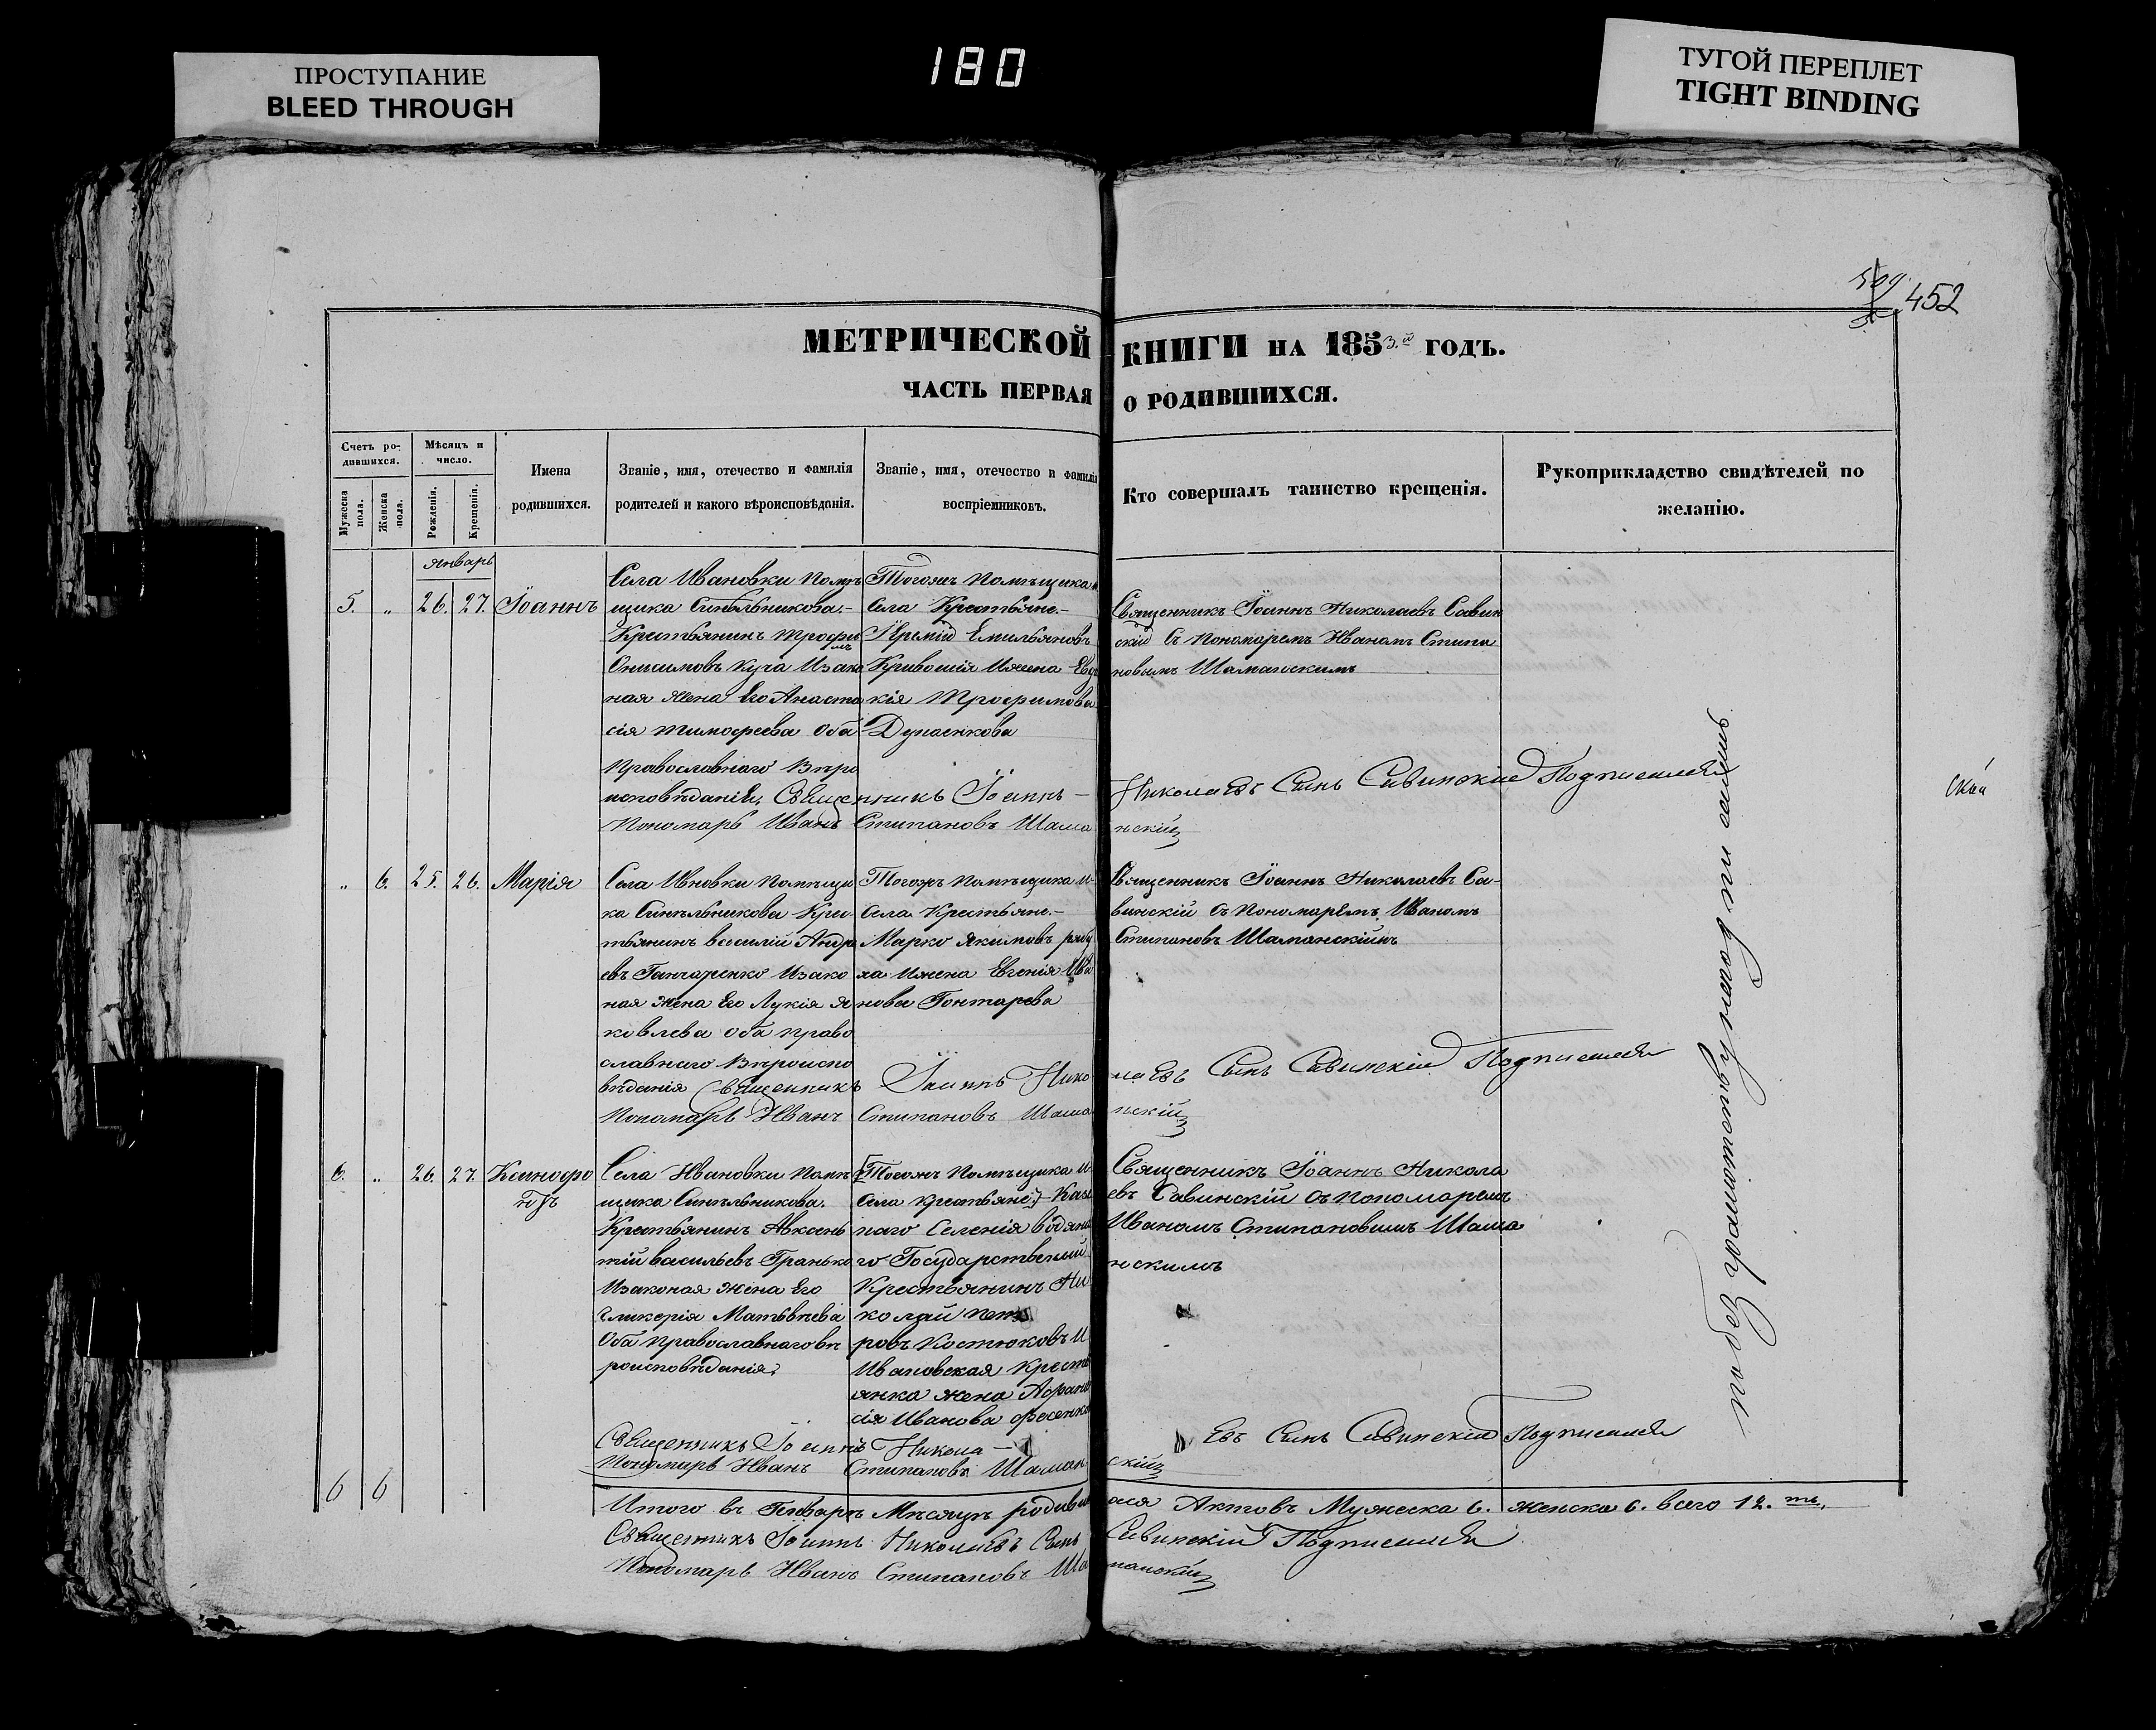 ПРОСТУПАНИЕ
BLEED THROUGH
180
ТУГОЙ ПЕРЕПЛЕТ
TIGHT BINDING
452
МЕТРИЧЕСКОЙ КНИГИ НА 1853.й ГОДЪ.
ЧАСТЬ ПЕРВАЯ О РОДИВШИХСЯ.
Счетъ ро-
дившихся.
Мужеска пола.
Женска пола.
Мѣсяцъ и
число.
Рожденія.
Крещенія.
Имена
родившихся.
Званіе, имя, отечество и фамилія
родителей и какого вѣроисповѣданія.
Званіе, имя, отечество и фамилія
воспріемниковъ.
Кто совершалъ таинство крещенія.
Рукоприкладство свидѣтелей по
желанію.
Январь
5. „ 26. 27. Іоаннъ
Села Ивановки Помѣ
щика Синѣльникова-
Крестьянинъ Трофи
мъ
Онисимовъ Куча Изако
ная Жена Его Анаста
сія Тимофеева Оба
Православнаго Вѣро
исповѣданія,
Тогожъ Помѣщика и
Села Крестьяне.-
Іеремій Емильяновъ
Кривошія Ижена Евд
кія Трофимова
Дунаенкова
Священникъ Іоаннъ Николаевъ Савин
скій Съ Пономаремъ Иваномъ Стипа
новымъ Шаманскимъ
Священникъ Іоаннъ - Николаевъ Сынъ Савинскій Подписался
Пономарь Иванъ Стипановъ Шаманскій
„ 6. 25. 26. Марія
Села Ивновки Помѣщи
ка Синѣльникова Кре-
тьянинъ Василій Андре
евъ Ганчаренко Изако
ная жена Его Лукія Я
ковлева Оба право
славнаго Вѣроиспо
вѣданія
Тогожъ Помѣщика и-
Села Крестьяне.-
Марко Якимовъ
ха Ижена Евгенія Ива
нова Гонтарева
Священникъ Іоаннъ Николаевъ Са-
винскій Съ Пономарёмъ Иваномъ
Стипановъ Шаманскійнъ
Священникъ Іоаннъ Николаевъ Сынъ Савинскій Подписался
Пономарь Иванъ Стипановъ Шаманскій
6. „ 26. 27. Ксинофо
нтъ
Села Ивановки Помѣ
щика Синѣльникова.
Крестьянинъ Авксень
тій Васильевъ Гранько
Изаконая жена Его
Гликерія Матвѣева
Оба Православнаго вѣ
роисповѣданія.
Тогожъ Помѣщика и
Села Крестьяне Казе
наго Селенія Водяна
го Государственій
Крестьянинъ Ни
колай Пет
ровъ Костюковъ И
Ивановская Кресть
янка жена Афана
сія Иванова
Священникъ Іоаннъ Никола
евъ Савинскій Съ Пономаремъ
Иваномъ Стипановымъ Шама
нскимъ
Священникъ Іоаннъ Никола- евъ Сынъ Савинскій Подписался
Пономарь Иванъ Стипановъ Шаманскій
6 6
Итого въ Генварѣ Мѣсяцѣ родившихся Актовъ Мужеска 6. женска 6. всего 12. ть.
Священникъ Іоаннъ Николаевъ Сынъ Савинскій Подписался
Пономарь Иванъ Стипановъ Шаманскій